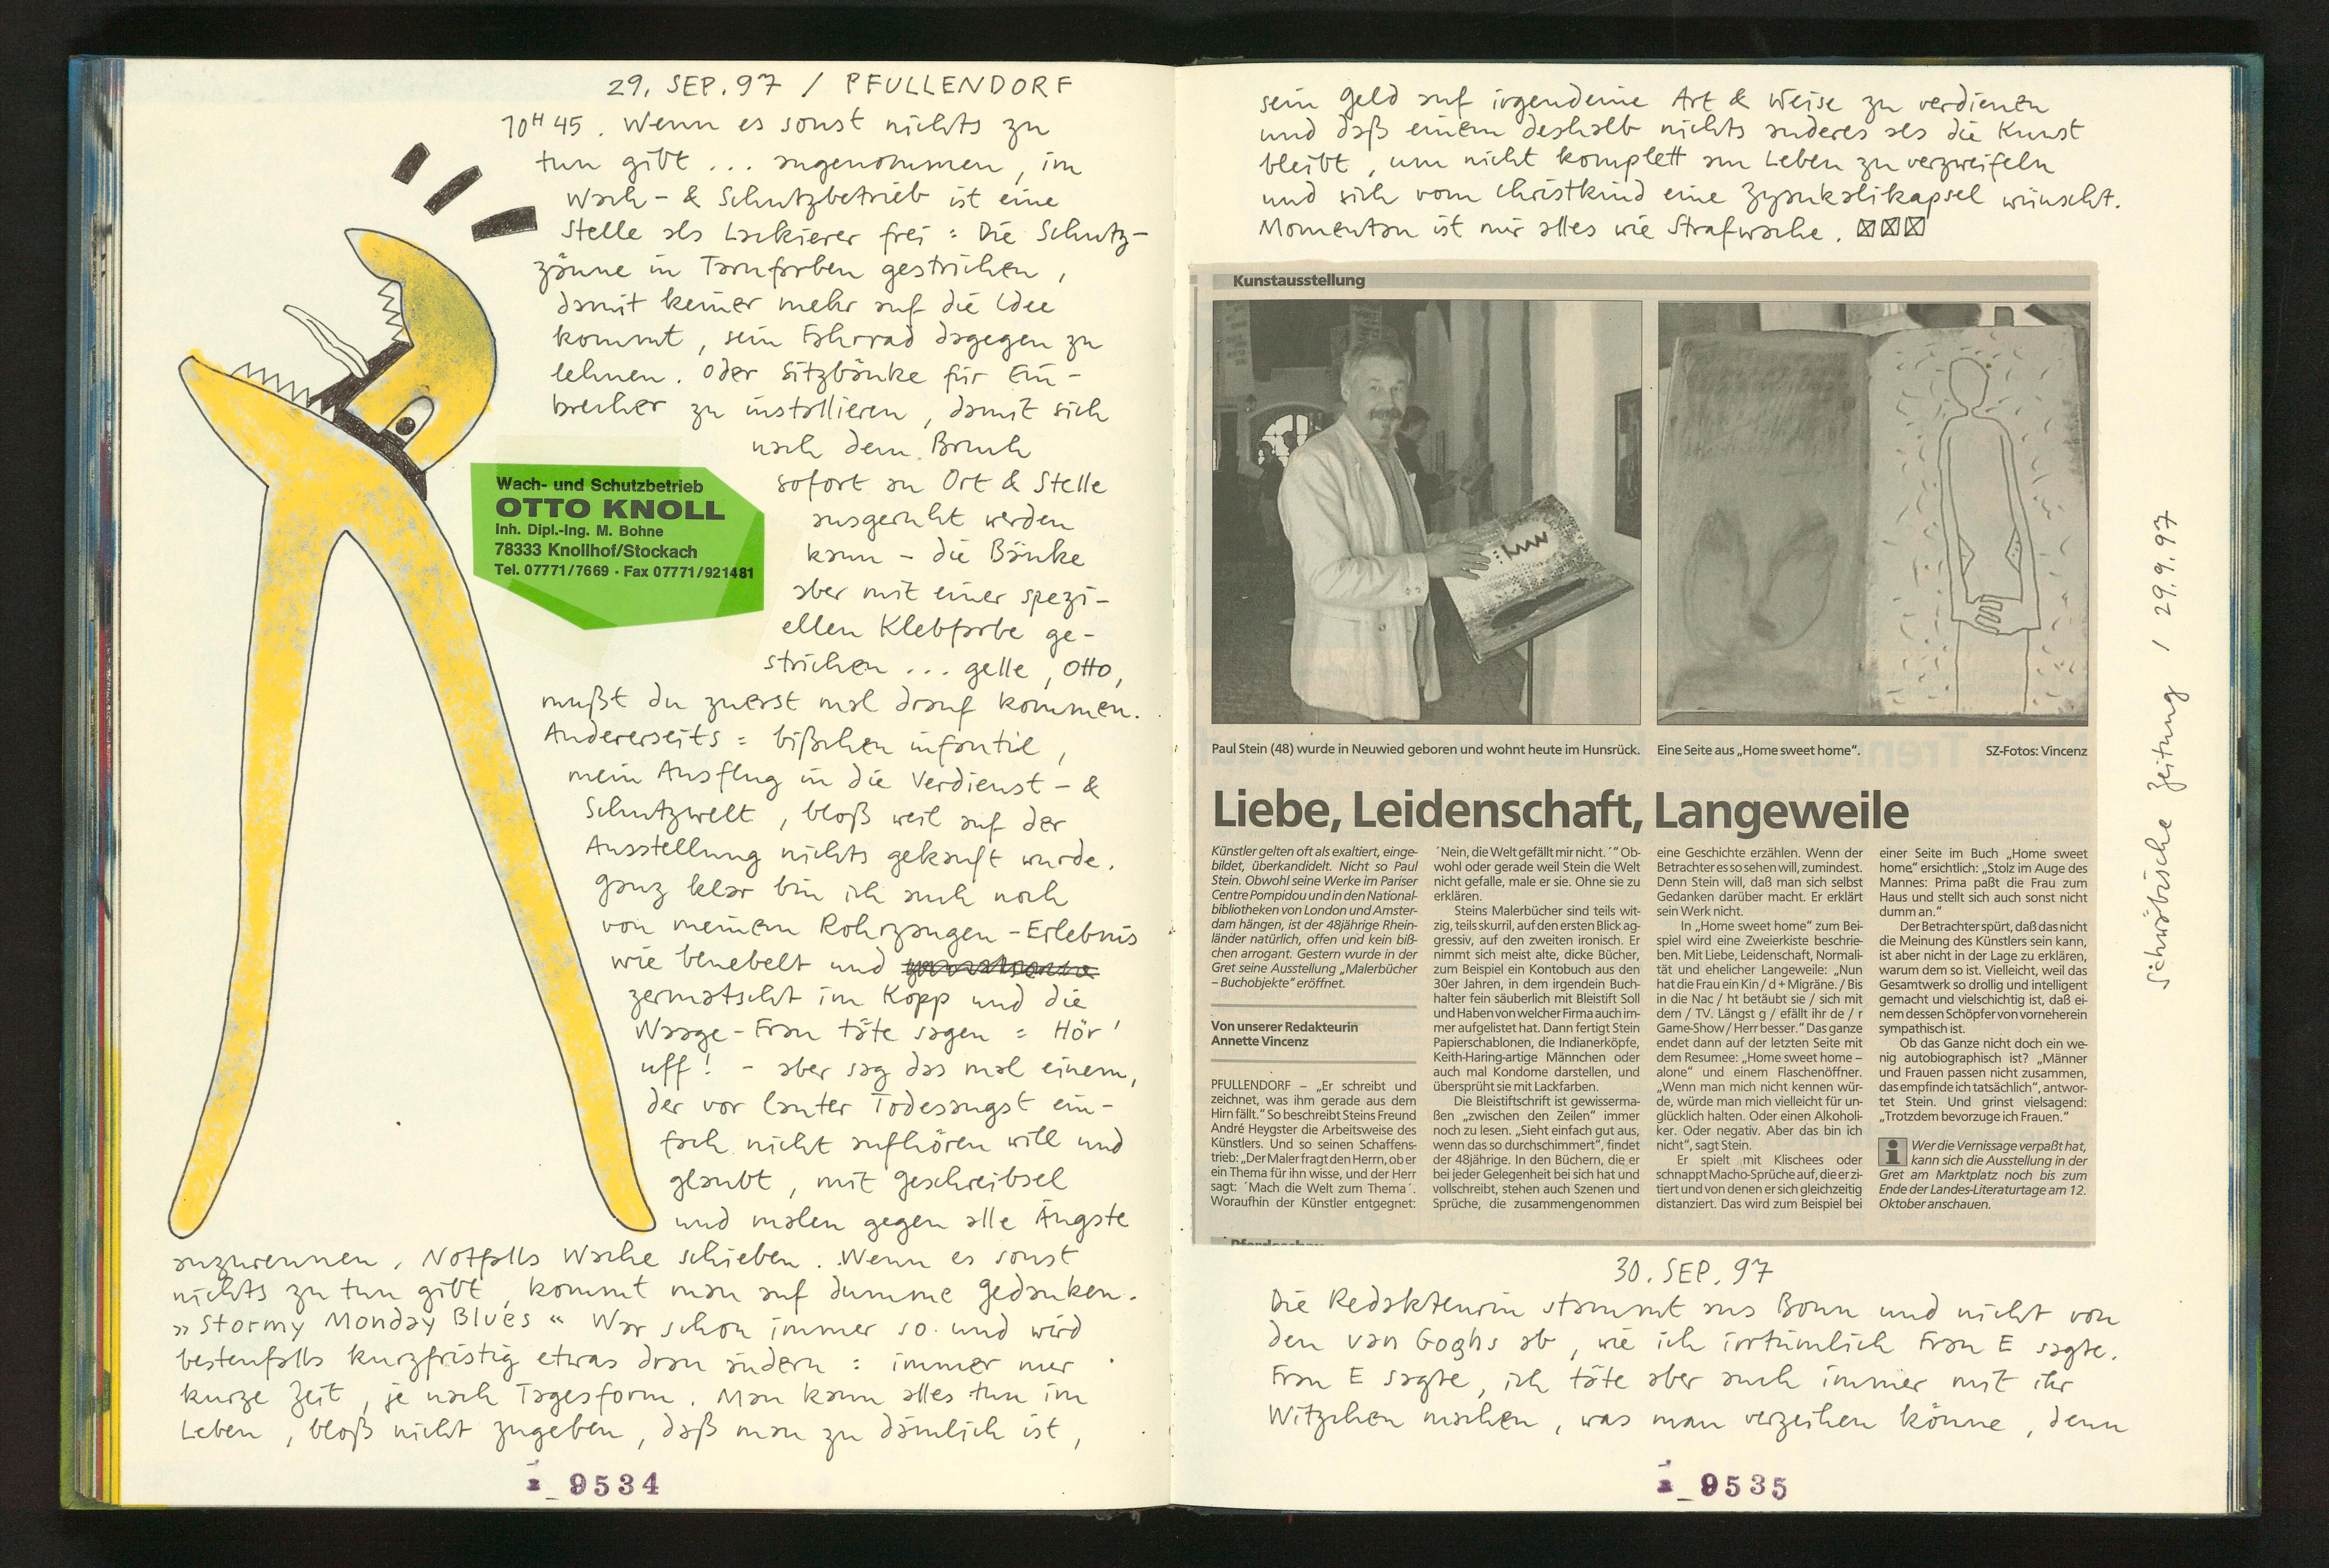 29. SEP. 97 / PFULLENDORF
10H 45. Wenn es sonst nichts zu
tun gibt ... angenommen, im
Wach- & Schutzbetrieb ist eine
Stelle als Lackierer frei : Die Schutz-
zäune in Tarnfarben gestrichen,
damit keiner mehr auf die Idee
kommt, sein Fahrrad dagegen zu
lehnen. Oder Sitzbänke für Ein-
brecher zu installieren, damit sich
nach dem Bruch
sofort an Ort & Stelle
ausgeruht werden
kann - die Bänke
aber mit einer spezi-
ellen Klebfarbe ge-
strichen ... gelle, Otto,
mußt du zuerst mal drauf kommen.
Andererseits : bißchen infantil,
mein Ausflug in die Verdienst- &
Schutzwelt, bloß weil auf der
Ausstellung nichts gekauft wurde.
Ganz klar bin ich auch noch
von meinem Rohrzangen-Erlebnis
wie benebelt und
zermatscht im Kopp und die
Waage-Frau täte sagen : Hör'
uff! - aber sag das mal einem,
der vor lauter Todesangst ein-
fach nicht aufhören will und
glaubt, mit Geschreibsel
und malen gegen alle Ängste
anzurennen. Notfalls Wache schieben. Wenn es sonst
nichts zu tun gibt, kommt man auf dumme Gedanken.
"Stormy Monday Blues" War schon immer so und wird
bestenfalls kurzfristig etwas dran ändern : immer nur
kurze Zeit, je nach Tagesform. Man kann alles tun im
Leben, bloß nicht zugeben, daß man zu dämlich ist,
Wach- und Schutzbetrieb
OTTO KNOLL
Inh. Dipl.-Ing. M. Bohne
78333 Knollhof/Stockach
Tel. 07771/7669 · Fax 07771/921481
9534
sein Geld auf irgendeine Art & Weise zu verdienen
und daß einem deshalb nichts anderes als die Kunst
bleibt, um nicht komplett am Leben zu verzweifeln
und sich vom Christkind eine Zyankalikapsel wünscht.
Momentan ist mir alles wie Strafwache.
Kunstausstellung
Paul Stein (48) wurde in Neuwied geboren und wohnt heute im Hunsrück.
Eine Seite aus „Home sweet home“.
SZ-Fotos: Vincenz
Liebe, Leidenschaft, Langeweile
Künstler gelten oft als exaltiert, einge-
bildet, überkandidelt. Nicht so Paul
Stein. Obwohl seine Werke im Pariser
Centre Pompidou und in den National-
bibliotheken von London und Amster-
dam hängen, ist der 48jährige Rhein-
länder natürlich, offen und kein biß-
chen arrogant. Gestern wurde in der
Gret seine Ausstellung „Malerbücher
– Buchobjekte“ eröffnet.
Von unserer Redakteurin
Annette Vincenz
PFULLENDORF – „Er schreibt und
zeichnet, was ihm gerade aus dem
Hirn fällt.“ So beschreibt Steins Freund
André Heygster die Arbeitsweise des
Künstlers. Und so seinen Schaffens-
trieb: „Der Maler fragt den Herrn, ob er
ein Thema für ihn wisse, und der Herr
sagt: ´Mach die Welt zum Thema´.
Woraufhin der Künstler entgegnet:
´Nein, die Welt gefällt mir nicht.´“ Ob-
wohl oder gerade weil Stein die Welt
nicht gefalle, male er sie. Ohne sie zu
erklären.
Steins Malerbücher sind teils wit-
zig, teils skurril, auf den ersten Blick ag-
gressiv, auf den zweiten ironisch. Er
nimmt sich meist alte, dicke Bücher,
zum Beispiel ein Kontobuch aus den
30er Jahren, in dem irgendein Buch-
halter fein säuberlich mit Bleistift Soll
und Haben von welcher Firma auch im-
mer aufgelistet hat. Dann fertigt Stein
Papierschablonen, die Indianerköpfe,
Keith-Haring-artige Männchen oder
auch mal Kondome darstellen, und
übersprüht sie mit Lackfarben.
Die Bleistiftschrift ist gewisserma-
ßen „zwischen den Zeilen“ immer
noch zu lesen. „Sieht einfach gut aus,
wenn das so durchschimmert“, findet
der 48jährige. In den Büchern, die er
bei jeder Gelegenheit bei sich hat und
vollschreibt, stehen auch Szenen und
Sprüche, die zusammengenommen
eine Geschichte erzählen. Wenn der
Betrachter es so sehen will, zumindest.
Denn Stein will, daß man sich selbst
Gedanken darüber macht. Er erklärt
sein Werk nicht.
In „Home sweet home“ zum Bei-
spiel wird eine Zweierkiste beschrie-
ben. Mit Liebe, Leidenschaft, Normali-
tät und ehelicher Langeweile: „Nun
hat die Frau ein Kin / d + Migräne. / Bis
in die Nac / ht betäubt sie / sich mit
dem / TV. Längst g / efällt ihr de / r
Game-Show / Herr besser.“ Das ganze
endet dann auf der letzten Seite mit
dem Resumee: „Home sweet home –
alone“ und einem Flaschenöffner.
„Wenn man mich nicht kennen wür-
de, würde man mich vielleicht für un-
glücklich halten. Oder einen Alkoholi-
ker. Oder negativ. Aber das bin ich
nicht“, sagt Stein.
Er spielt mit Klischees oder
schnappt Macho-Sprüche auf, die er zi-
tiert und von denen er sich gleichzeitig
distanziert. Das wird zum Beispiel bei
einer Seite im Buch „Home sweet
home“ ersichtlich: „Stolz im Auge des
Mannes: Prima paßt die Frau zum
Haus und stellt sich auch sonst nicht
dumm an.“
Der Betrachter spürt, daß das nicht
die Meinung des Künstlers sein kann,
ist aber nicht in der Lage zu erklären,
warum dem so ist. Vielleicht, weil das
Gesamtwerk so drollig und intelligent
gemacht und vielschichtig ist, daß ei-
nem dessen Schöpfer von vorneherein
sympathisch ist.
Ob das Ganze nicht doch ein we-
nig autobiographisch ist? „Männer
und Frauen passen nicht zusammen,
das empfinde ich tatsächlich“, antwor-
tet Stein. Und grinst vielsagend:
„Trotzdem bevorzuge ich Frauen.“
Wer die Vernissage verpaßt hat,
kann sich die Ausstellung in der
Gret am Marktplatz noch bis zum
Ende der Landes-Literaturtage am 12.
Oktober anschauen.
Schwäbische Zeitung / 29.9.97
30. SEP. 97
Die Redakteurin stammt aus Bonn und nicht von
den van Goghs ab, wie ich irrtümlich Frau E sagte.
Frau E sagte, ich täte aber auch immer mit ihr
Witzchen machen, was man verzeihen könne, denn
9535